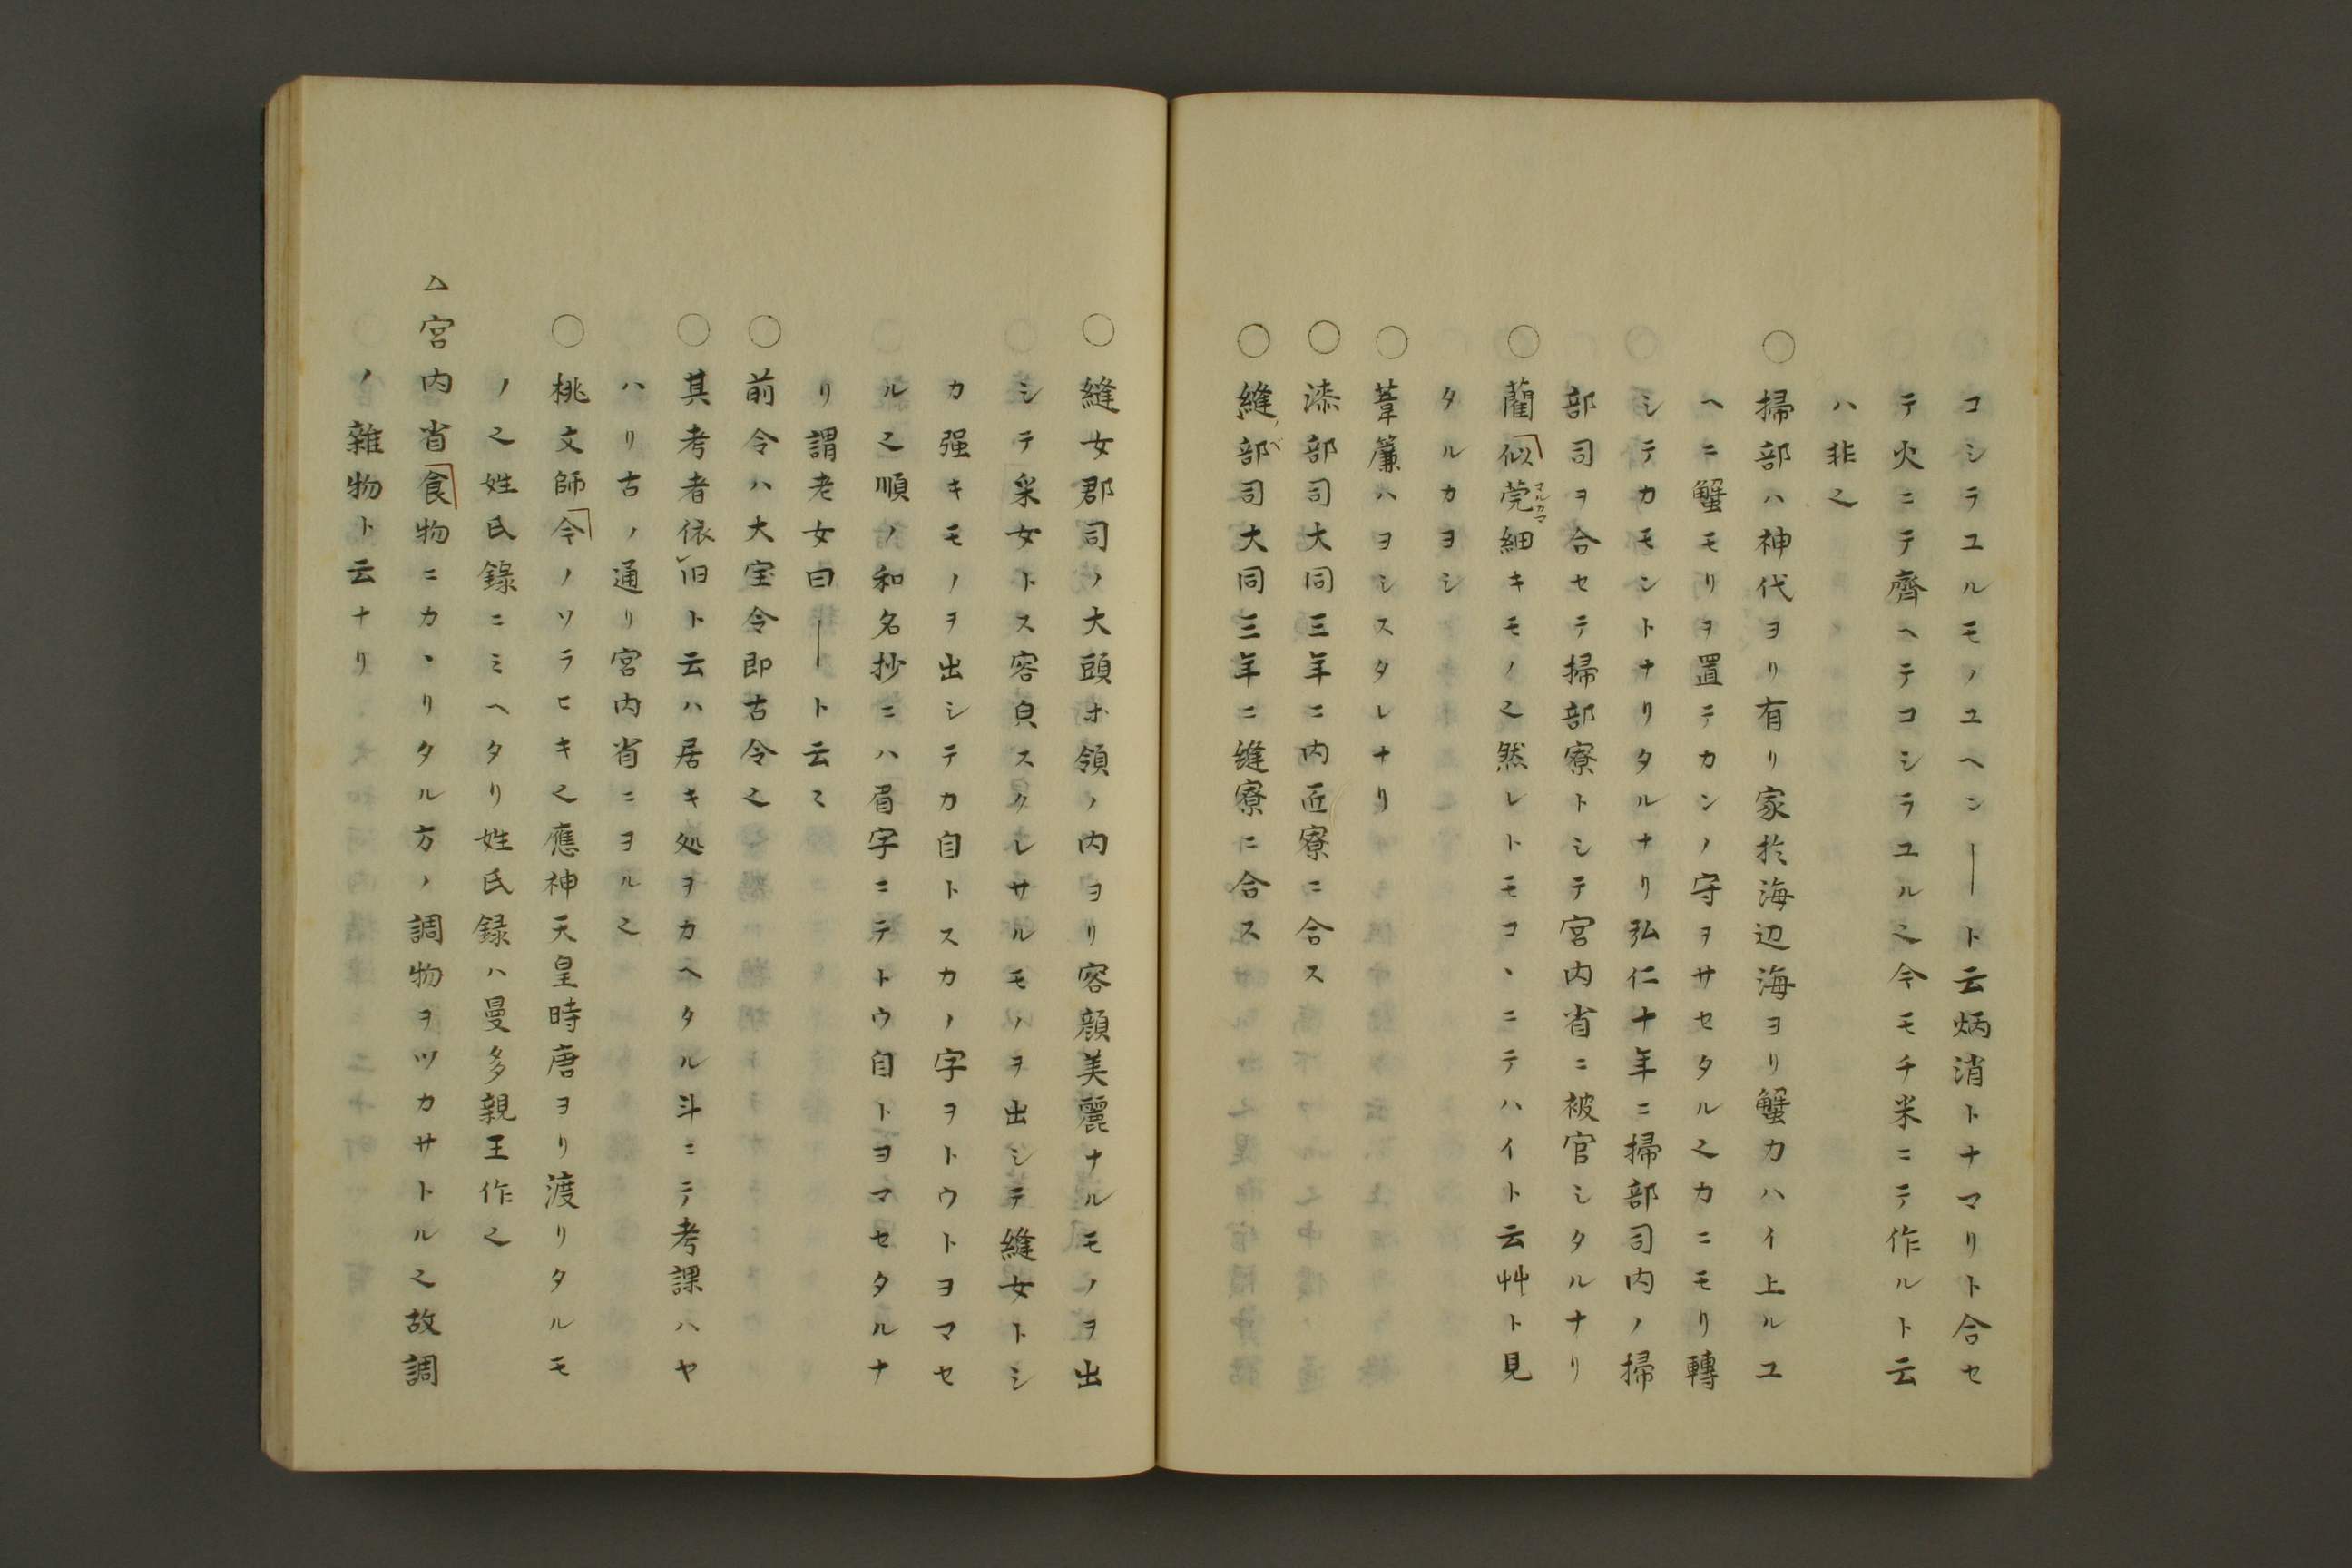 コシラユルモノユヘン――ト云炳消トナマリト合セ
テ火ニテ齊ヘテコシラユル之今モチ米ニテ作ルト云
ハ非之
○掃部ハ神代ヨリ有リ家於海辺海ヨリ蟹カハイ上ルユ
ヘニ蟹モリヲ置テカンノ守ヲサセタル之カニモリ轉
シテカモントナリタルナリ弘仁十年ニ掃部司内ノ掃
部司ヲ合セテ掃部寮トシテ宮内省ニ被官シタルナリ
○藺似莞細キモノ之然レトモコヽニテハイト云艸ト見
マルカマ
タルカヨシ
○葦簾ハヨシスタレナリ
○漆部司大同三年ニ内匠寮ニ合ス
○縫部司大同三年ニ縫寮ニ合ス
○縫女郡司ノ大頭ホ領ノ内ヨリ容顔美麗ナルモノヲ出
シテ采女トス容皃スクレサルモノヲ出シテ縫女トシ
カ强キモノヲ出シテカ自トスカノ字ヲトウトヨマセ
ル之順ノ和名抄ニハ眉字ニテトウ自トヨマセタルナ
リ謂老女曰――ト云〻
○前令ハ大宝令即古令之
○其考者依旧ト云ハ居キ処ヲカヘタル斗ニテ考課ハヤ
ハリ古ノ通リ宮内省ニヨル之
○桃文師令ノソラヒキ之應神天皇時唐ヨリ渡リタルモ
ノ之姓氏錄ニミヘタリ姓氏録ハ曼多親王作之
△宮内省食物ニカヽリタル方ノ調物ヲツカサトル之故調
ノ雜物ト云ナリ